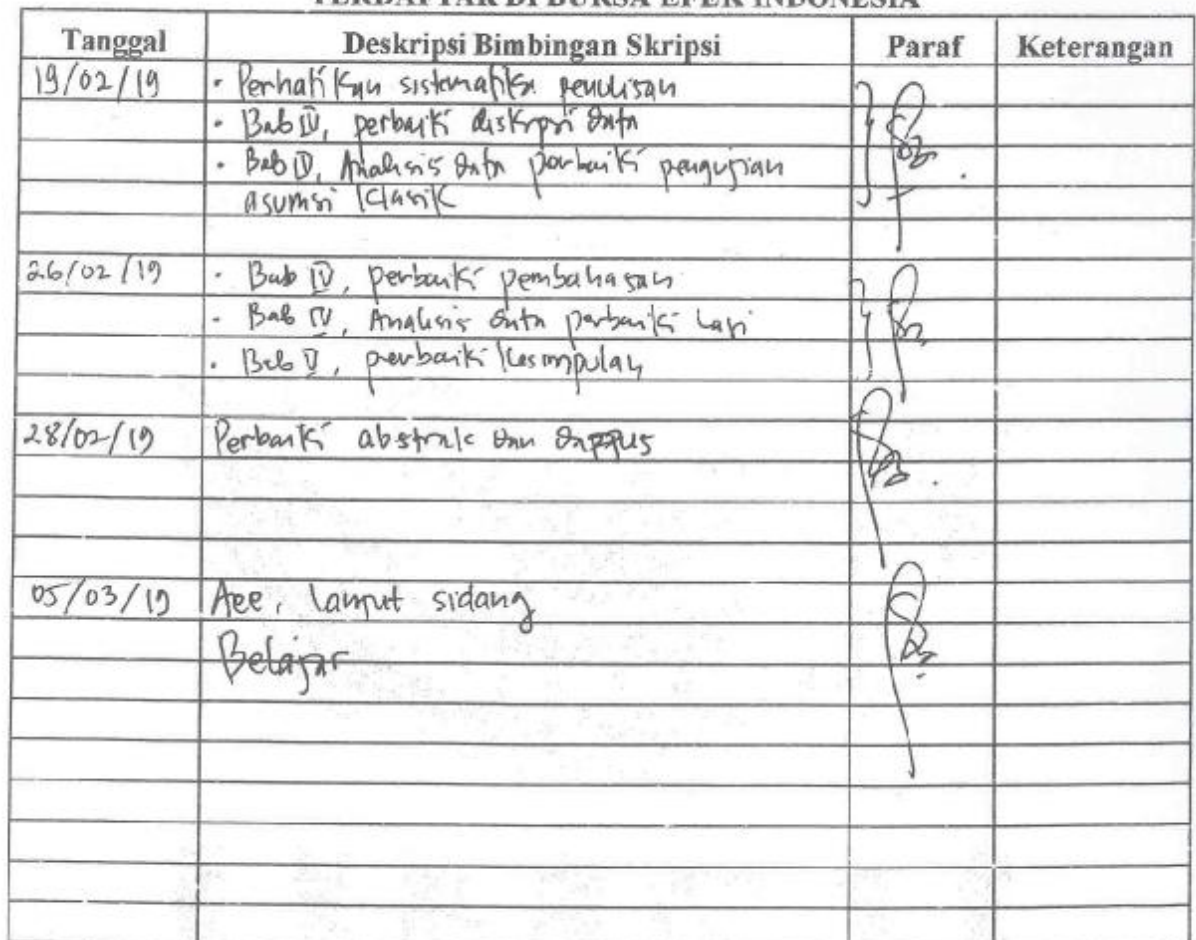 TERDAFTAR DI BURSA EFEK INDONESIA
Tanggal Deskripsi Bimbingan Skripsi Paraf Keterangan
19/02/19 · Perhatikan sistematika penulisan
· Bab IV, perbaiki diskripsi data
· Bab IV, Analisis data perbaiki pengujian
asumsi klasik
26/02/19 · Bab IV, perbaiki pembahasan
· Bab IV, Analisis data perbaiki lagi
· Bab V, perbaiki kesimpulan
28/02/19 Perbaiki abstrak dan dappus
05/03/19 Acc, lanjut sidang
Belajar